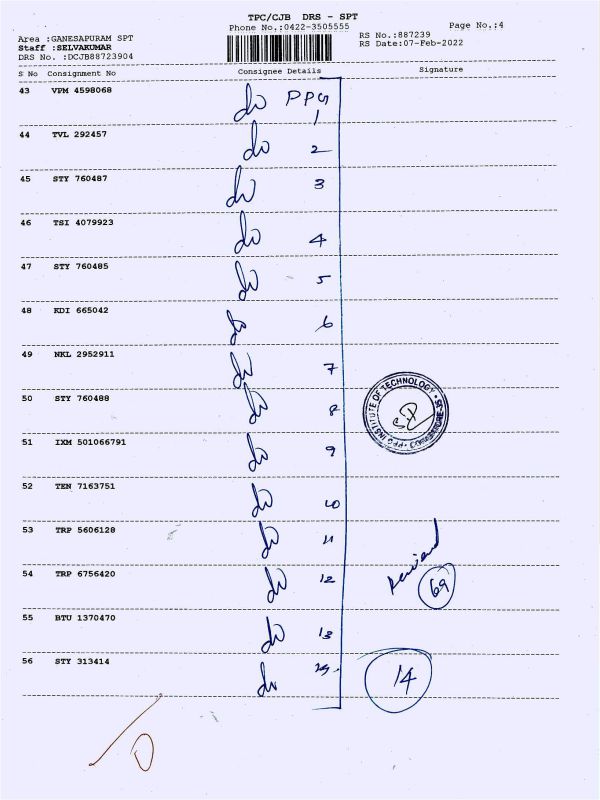 TPC/CJB DRS - SPT
Phone No.:0422-3505555
Page No.:4
Area :GANESAPURAM SPT
Staff :SELVAKUMAR
DRS No. :DCJB88723904
RS No.:887239
RS Date:07-Feb-2022
S No Consignment No Consignee Details Signature
43 VPM 4598068 do PPG 1
44 TVL 292457 do 2
45 STY 760487 do 3
46 TSI 4079923 do 4
47 STY 760485 do 5
48 KDI 665042 do 6
49 NKL 2952911 do 7
50 STY 760488 do 8
PPG INSTITUTE OF TECHNOLOGY
51 IXM 501066791 do 9
52 TEN 7163751 do 10
53 TRP 5606128 do 11
54 TRP 6756420 do 12
69
55 BTU 1370470 do 13
56 STY 313414 do 14
14